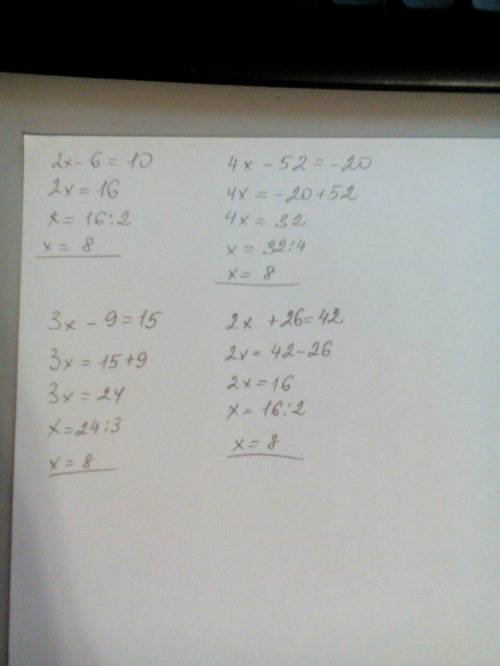 2x - 6 = 10
2x = 16
x = 16:2
x = 8
4x - 52 = -20
4x = -20+52
4x = 32
x = 32:4
x = 8
3x - 9 = 15
3x = 15+9
3x = 24
x = 24:3
x = 8
2x + 26 = 42
2x = 42-26
2x = 16
x = 16:2
x = 8